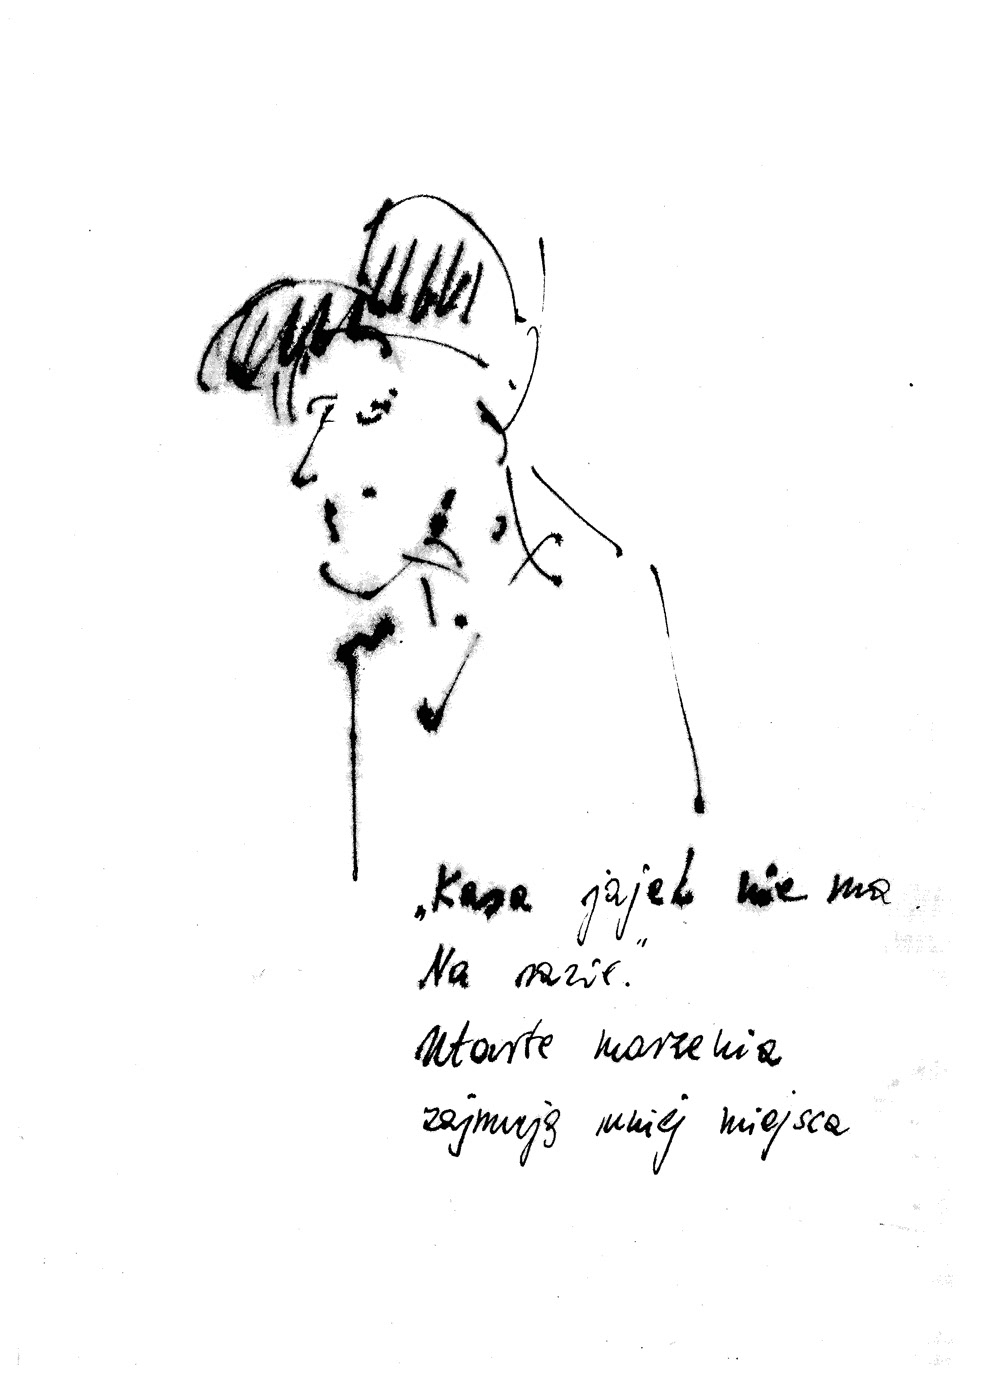 „Kasa jajek nie ma
Na razie."
Utarte marzenia
zajmują mniej miejsca